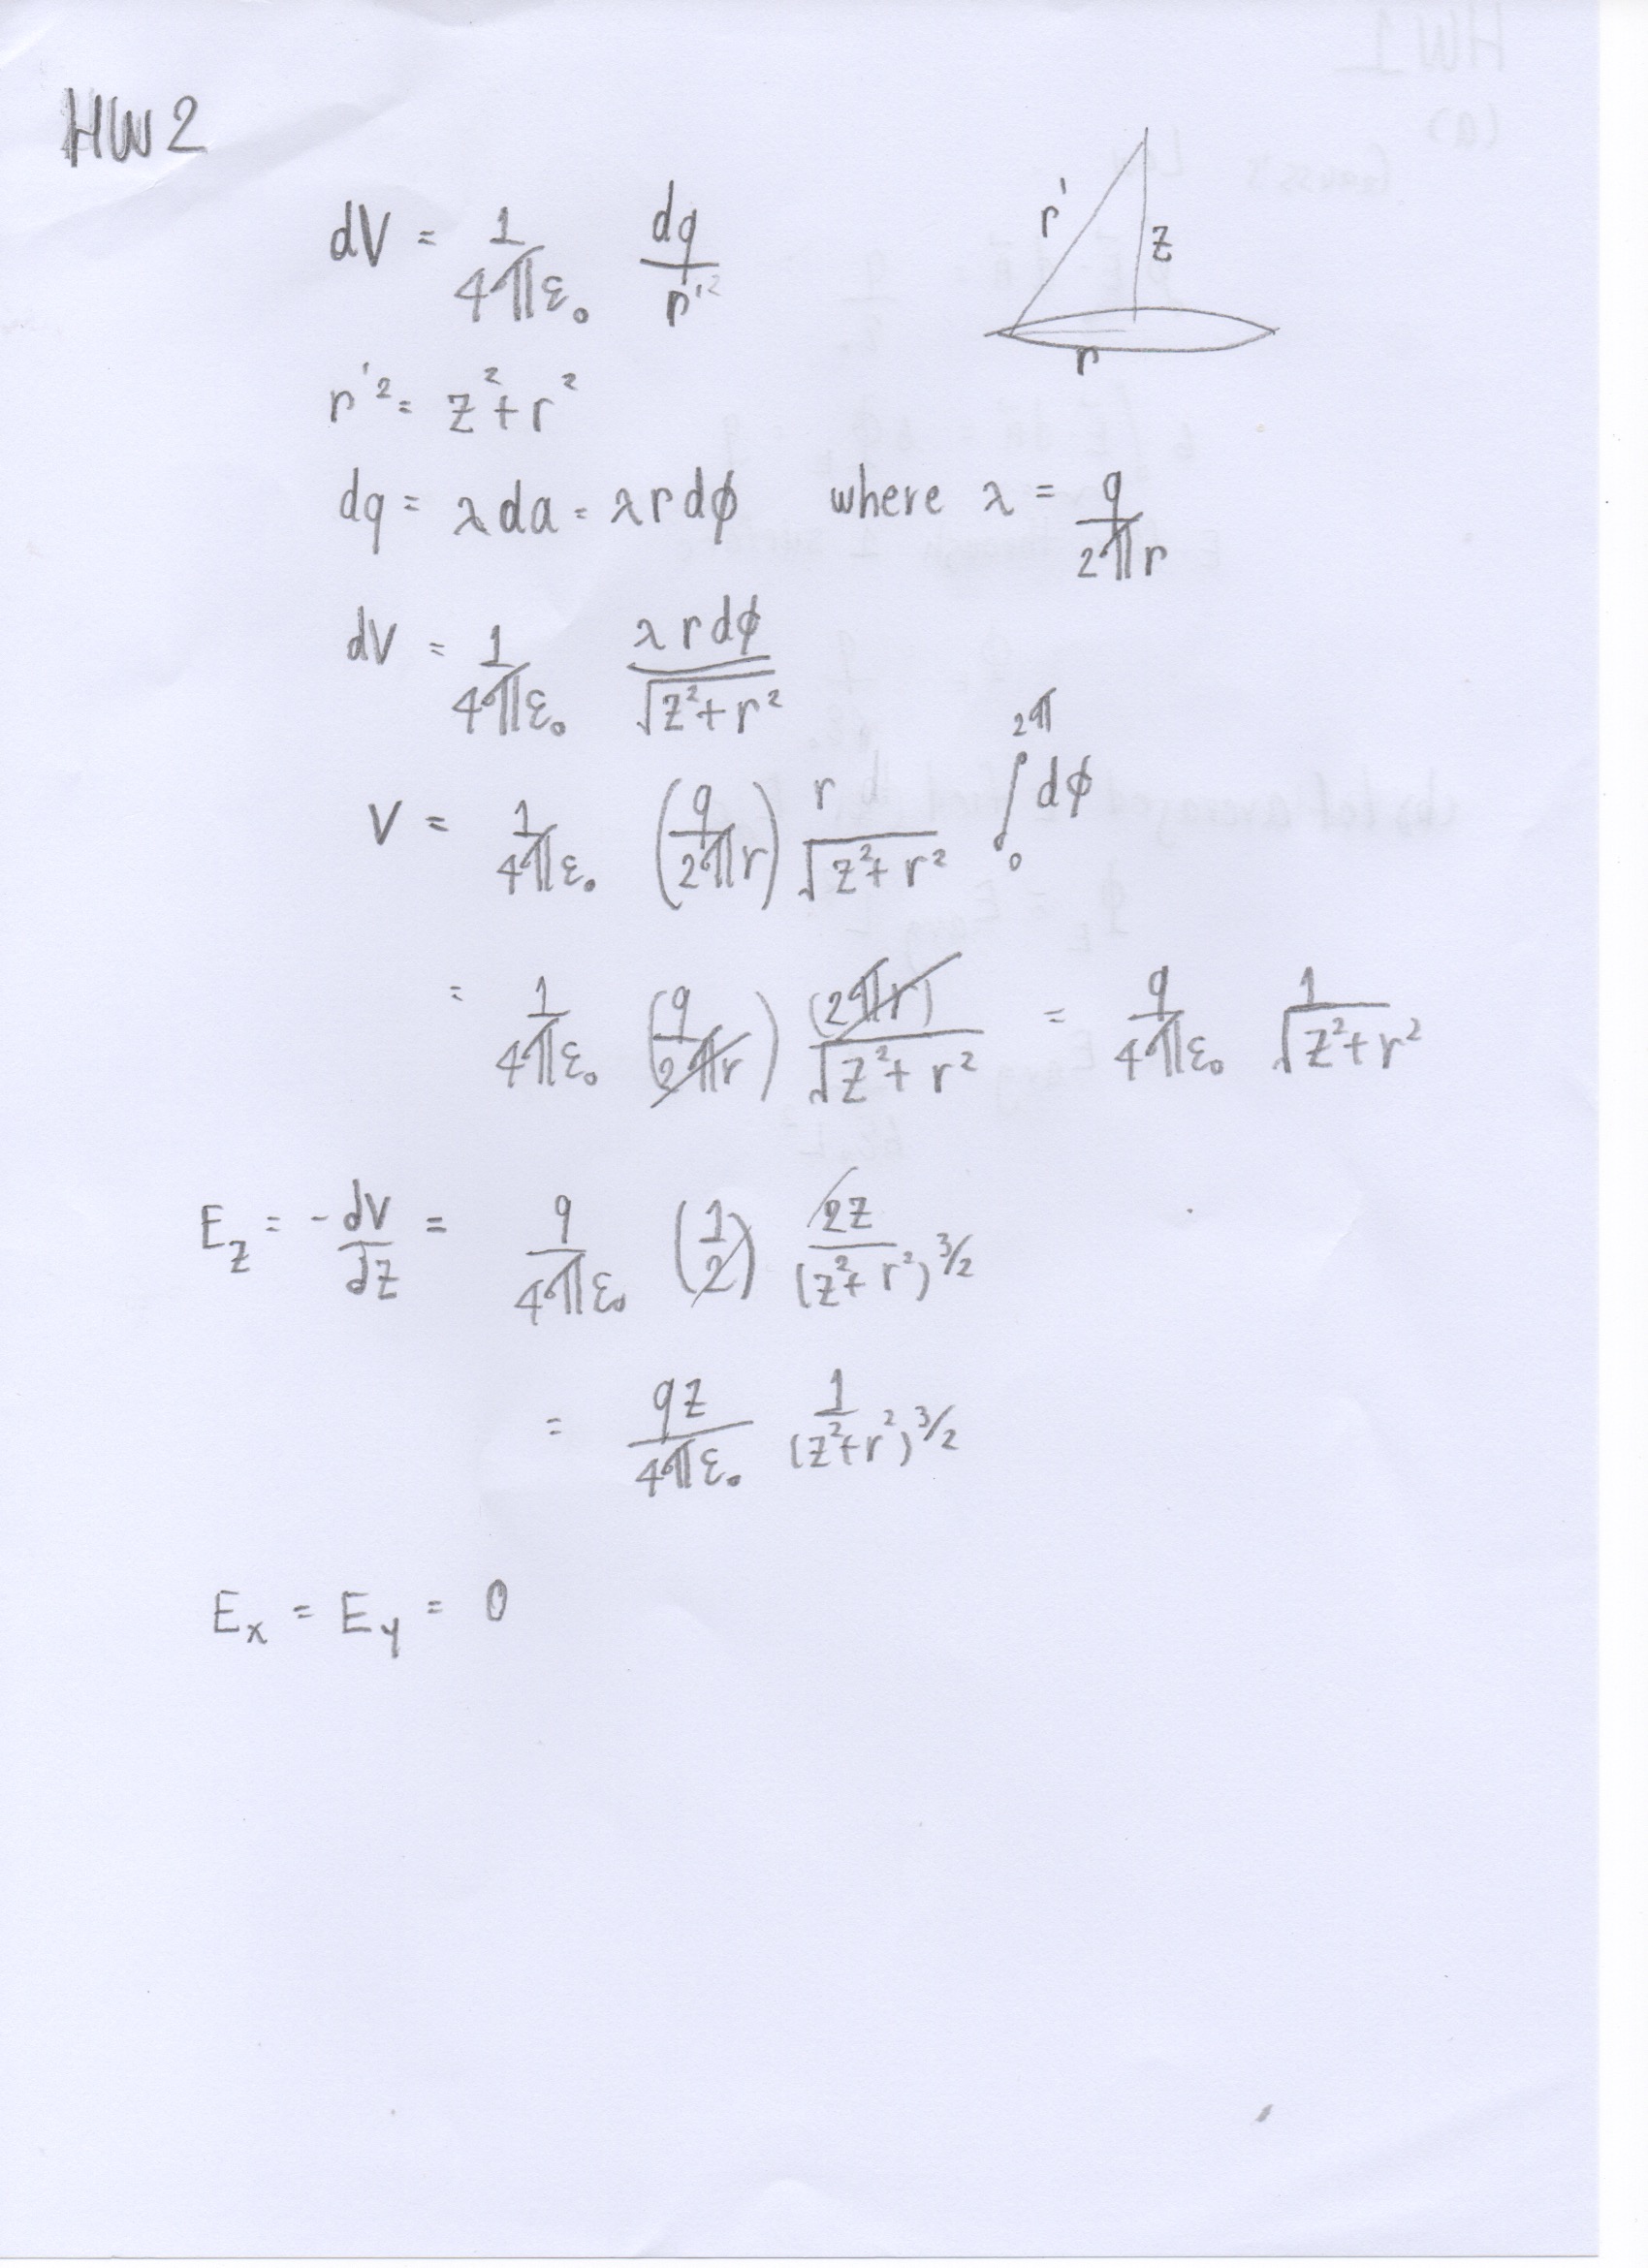 HW2
dV = 1/4πε₀ dq/r'²
r'
z
r
r'² = z² + r²
dq = λda = λrdϕ where λ = q/2πr
dV = 1/4πε₀ λrdϕ/√(z²+r²)
V = 1/4πε₀ (q/2πr) r/√(z²+r²) ∫₀^2π dϕ
= 1/4πε₀ (q/2πr) (2πr)/√(z²+r²) = q/4πε₀ 1/√(z²+r²)
E_z = -dV/dz = q/4πε₀ (1/2) 2z/(z²+r²)^3/2
= qz/4πε₀ 1/(z²+r²)^3/2
E_x = E_y = 0